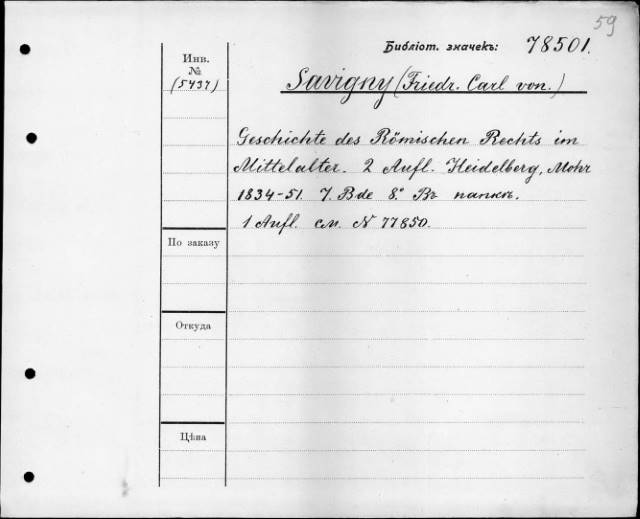 59
Библіот. значекъ: 78501.
Инв.
№
(5437)
Savigny (Friedr. Carl von.)
Geschichte des Römischen Rechts im
Mittelalter. 2 Aufl. Heidelberg, Mohr
1834-51. 7. Bde 8.° Въ папкѣ.
1 Aufl. см. N 77850.
По заказу
Откуда
Цѣна